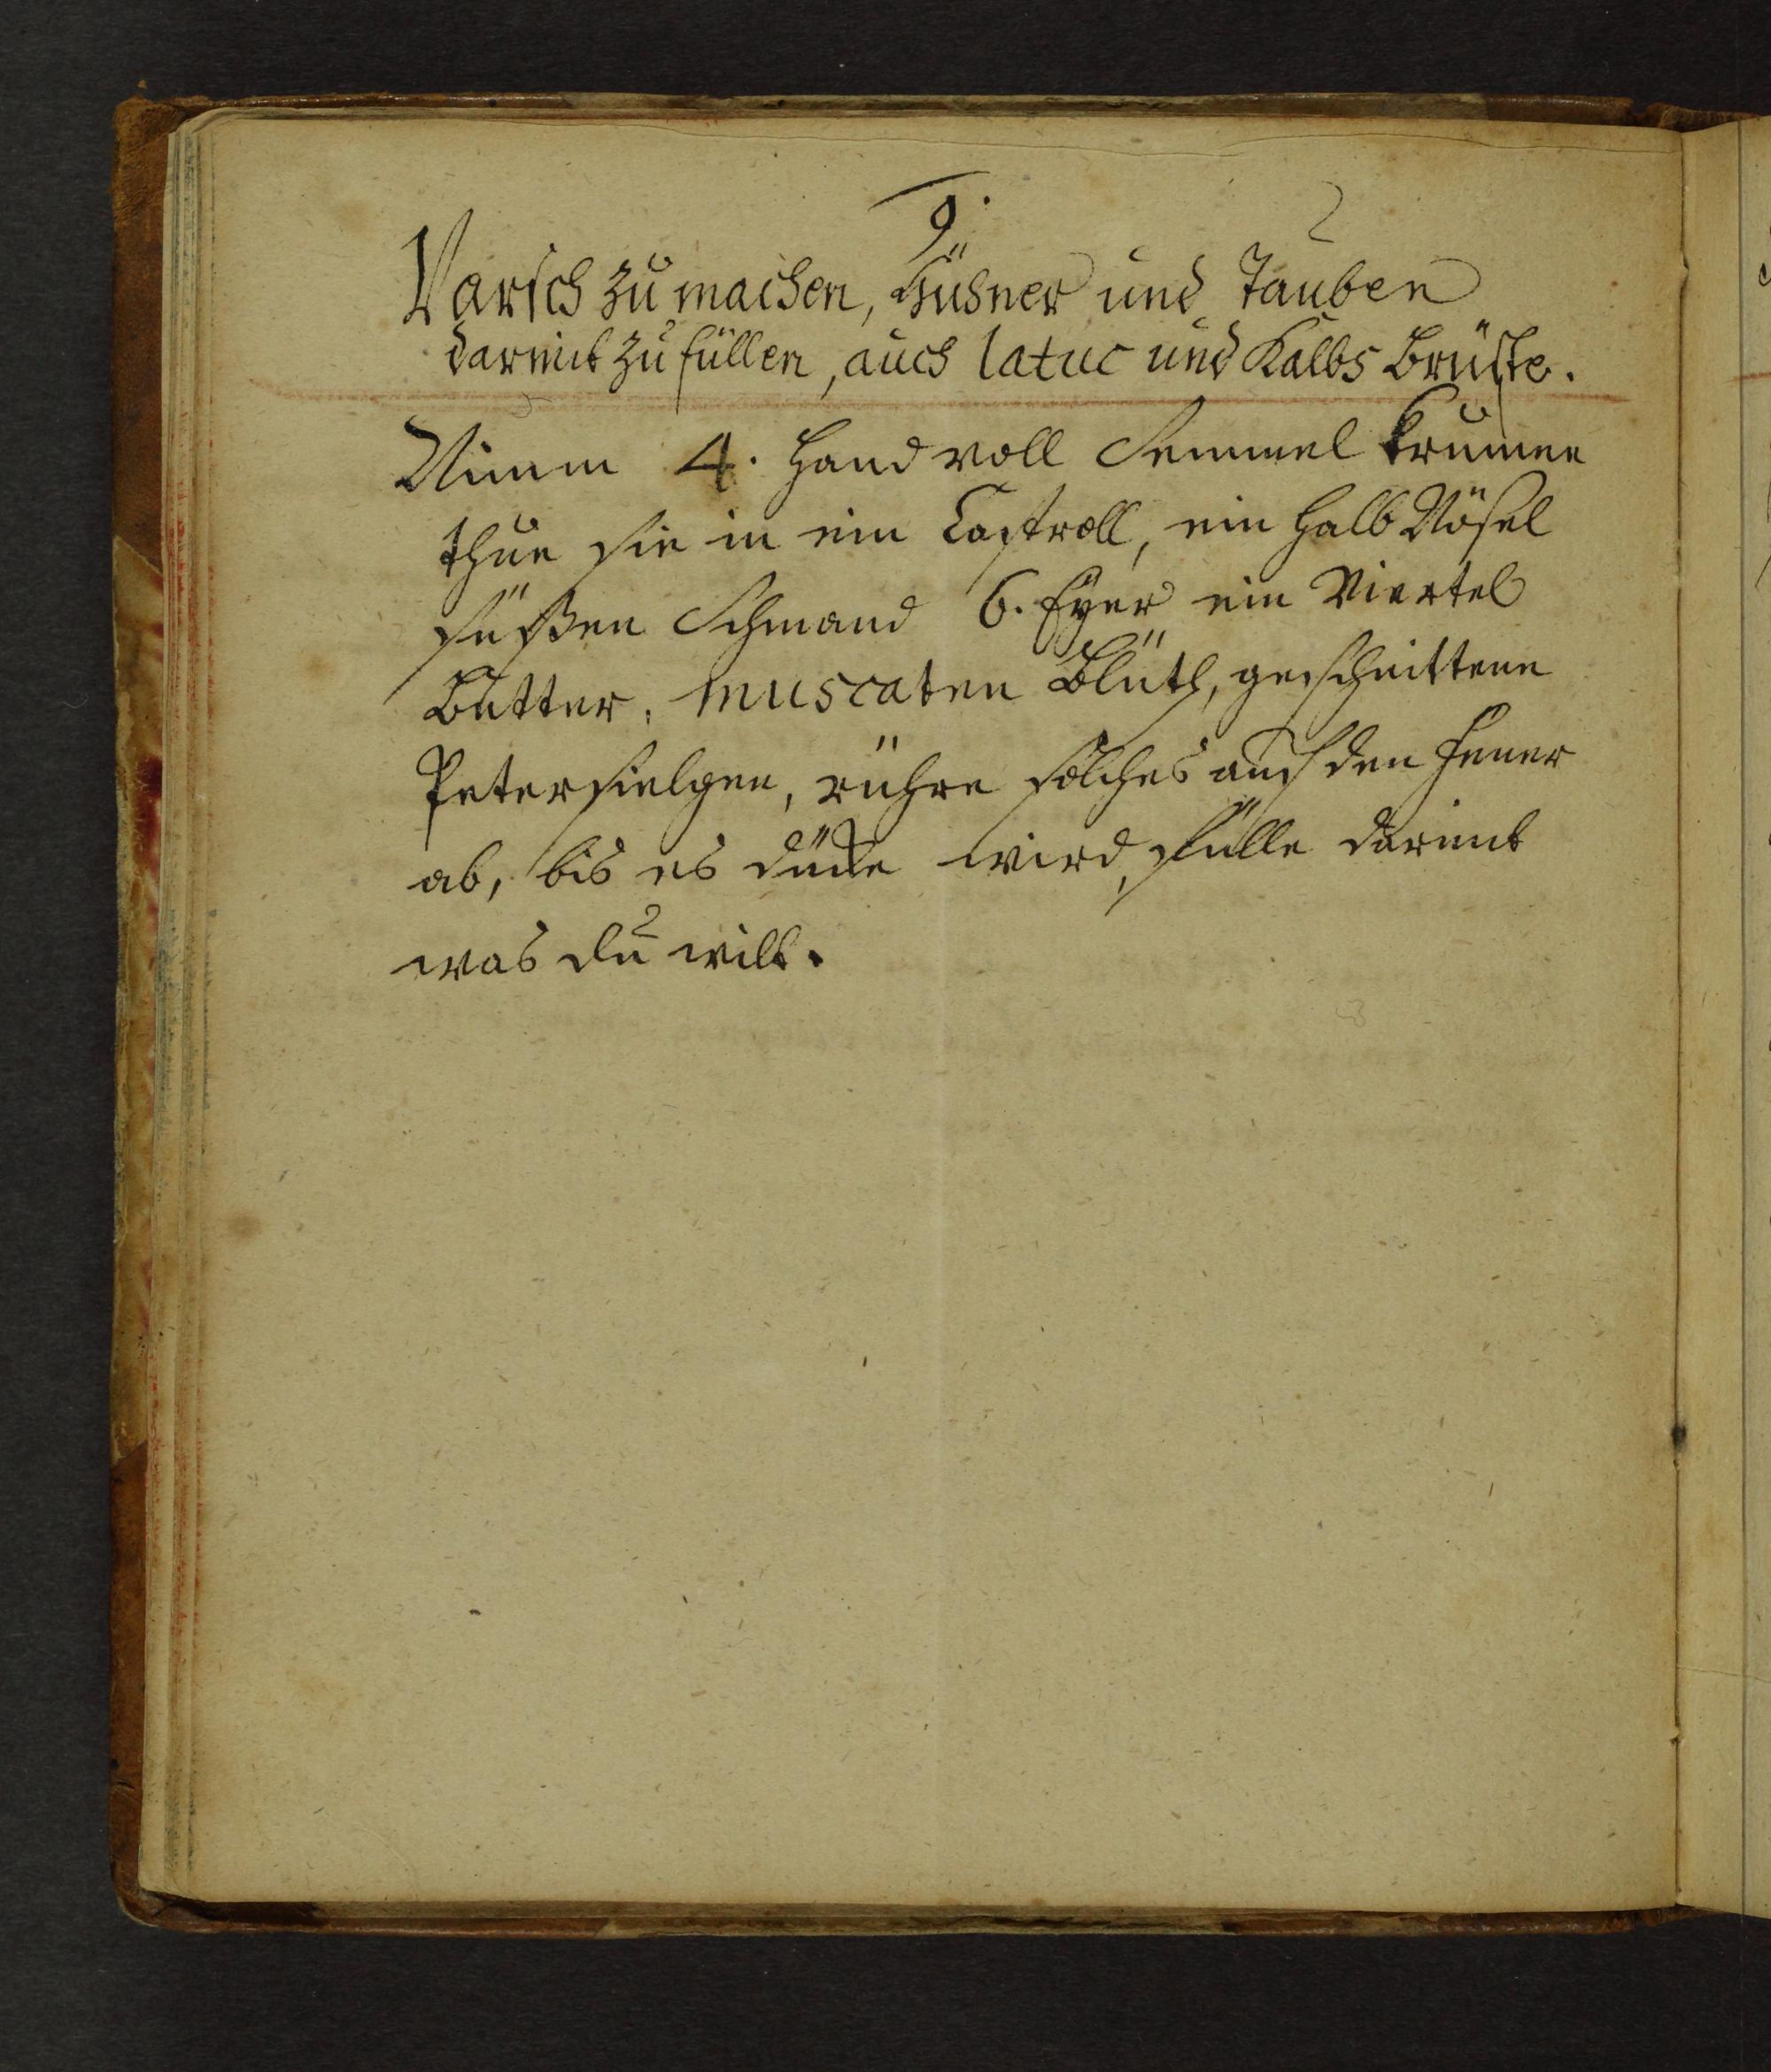 9.
Varsch zu machen, Hühner und Tauben
darmit zu füllen, auch latuc und Kalbs Brüste.
Nimm 4. Handvoll Semmel Krumen
thue sie in ein Castroll, ein halb Nösel
süßen Schmand 6. Eyer ein Viertel
Butter, muscaten Blüth, geschnittene
Petersielgen, rühre solches auf den Feuer
ab, bis es dücke wird, fülle darmit
was du wilt.